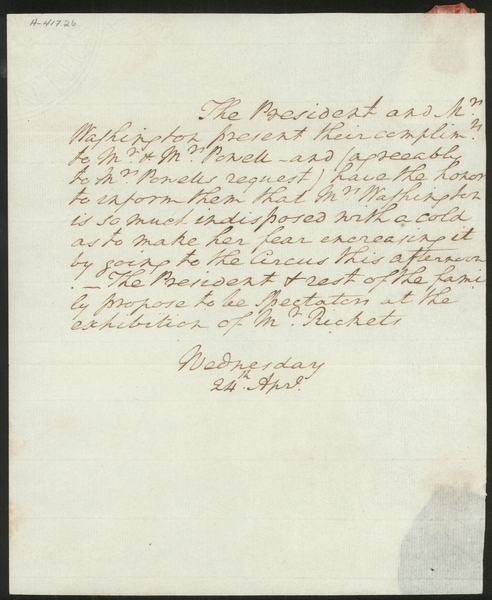 A-417.26
The President and Mrs.
Washington present their complimts.
to Mr. & Mrs. Powell - and (agreeably
to Mrs. Powells request) have the honor
to inform them that Mrs. Washington
is so much indisposed with a cold
as to make her fear increasing it
by going to the Circus this afternoon
. — The President & rest of the fami
ly propose to be Spectators at the
exhibition of Mr. Rickets
Wednesday
24th. Aprl.